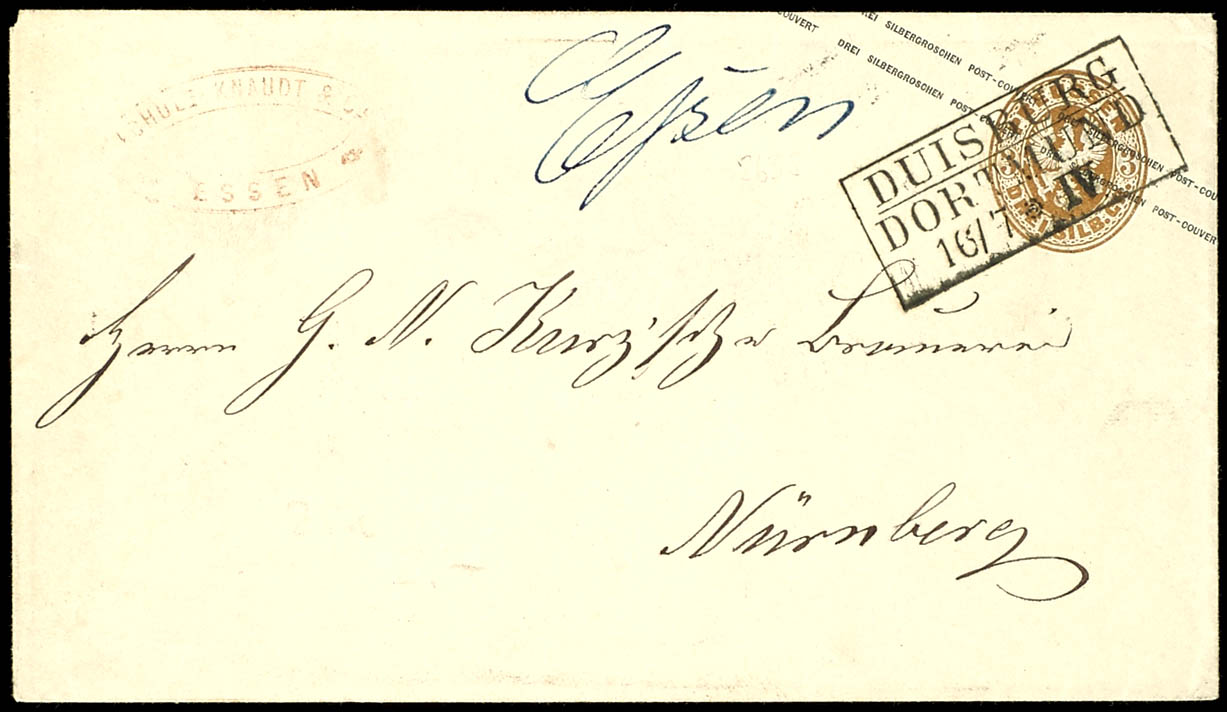 SCHULZ KNAUDT & Co.
ESSEN
Essen
COUVERT DREI SILBERGROSCHEN POST-COUVERT
DREI SILBERGROSCHEN POST-COUVERT
DREI SILBERGROSCHEN POST-COUVERT
DREI SILBERGROSCHEN POST-COUVERT
PREUSSEN
3 3
DREI SILB. GR.
DUISBURG
DORTMUND
16/7 * IV
Herrn G. N. Kurz'sche Brauerei
Nürnberg